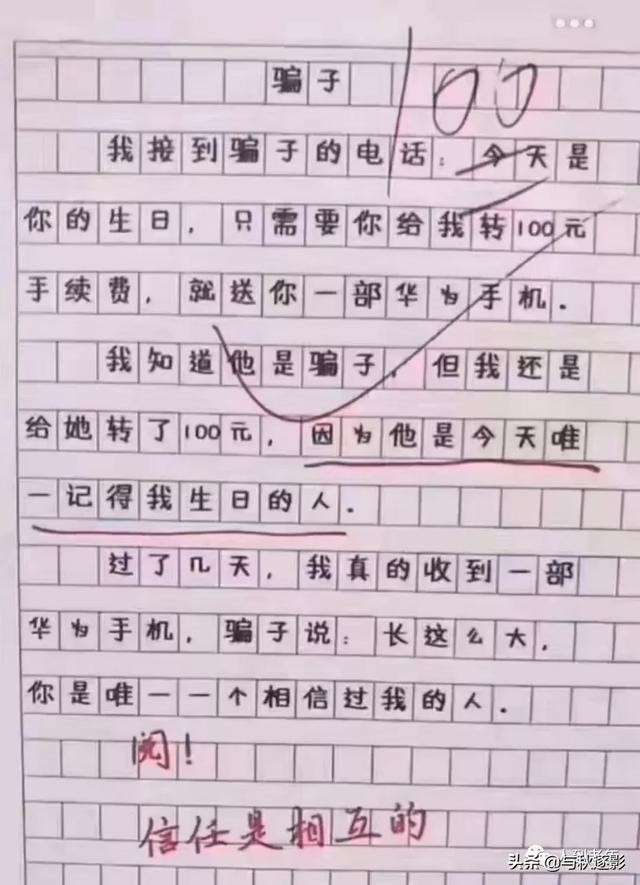 骗子
100
我接到骗子的电话：今天是
你的生日，只需要你给我转100元
手续费，就送你一部华为手机．
我知道他是骗子，但我还是
给她转了100元，因为他是今天唯
一记得我生日的人．
过了几天，我真的收到一部
华为手机，骗子说：长这么大，
你是唯一一个相信过我的人．
阅！
信任是相互的
人到老年
头条@与秋逐影